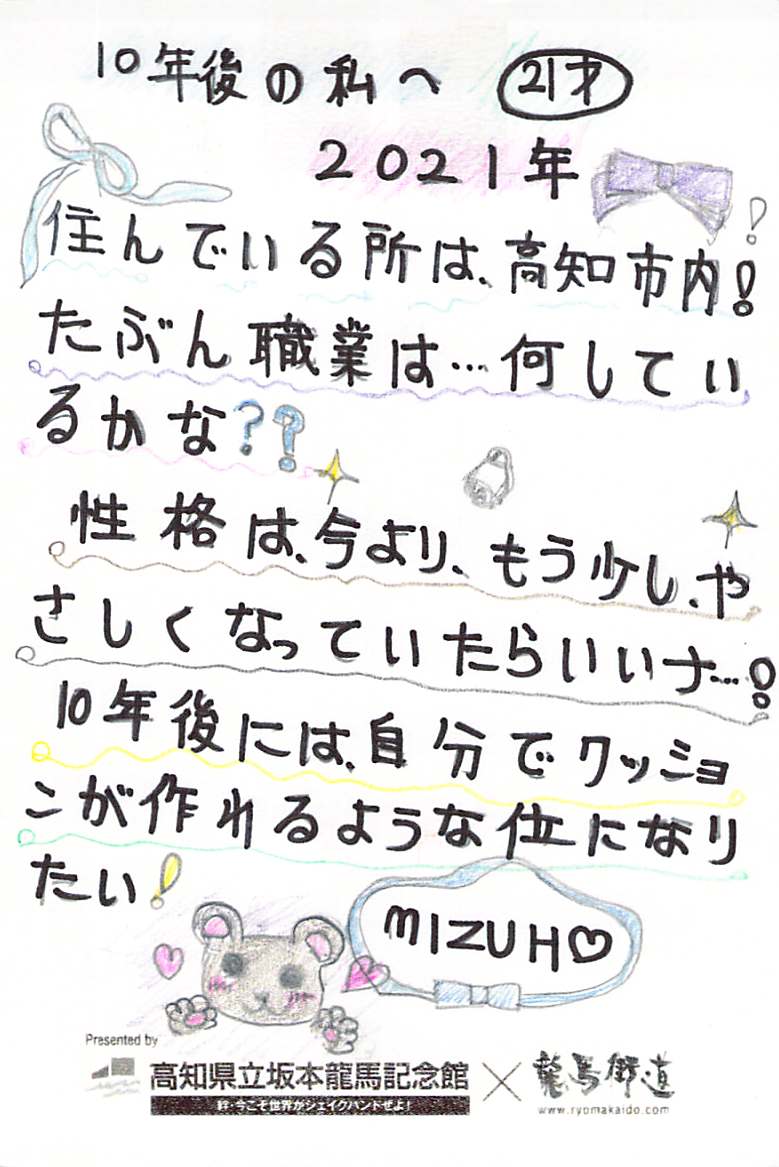 10年後の私へ 21才
2021年
住んでいる所は、高知市内!!
たぶん職業は…何してい
るかな??
性格は、今より、もう少し、や
さしくなっていたらいいナ…!
10年後には、自分でクッショ
ンが作れるような位になり
たい!
MIZUH♡
Presented by
高知県立坂本龍馬記念館 × 龍馬街道
絆・今こそ世界がシェイクハンドぜよ!
www.ryomakaido.com